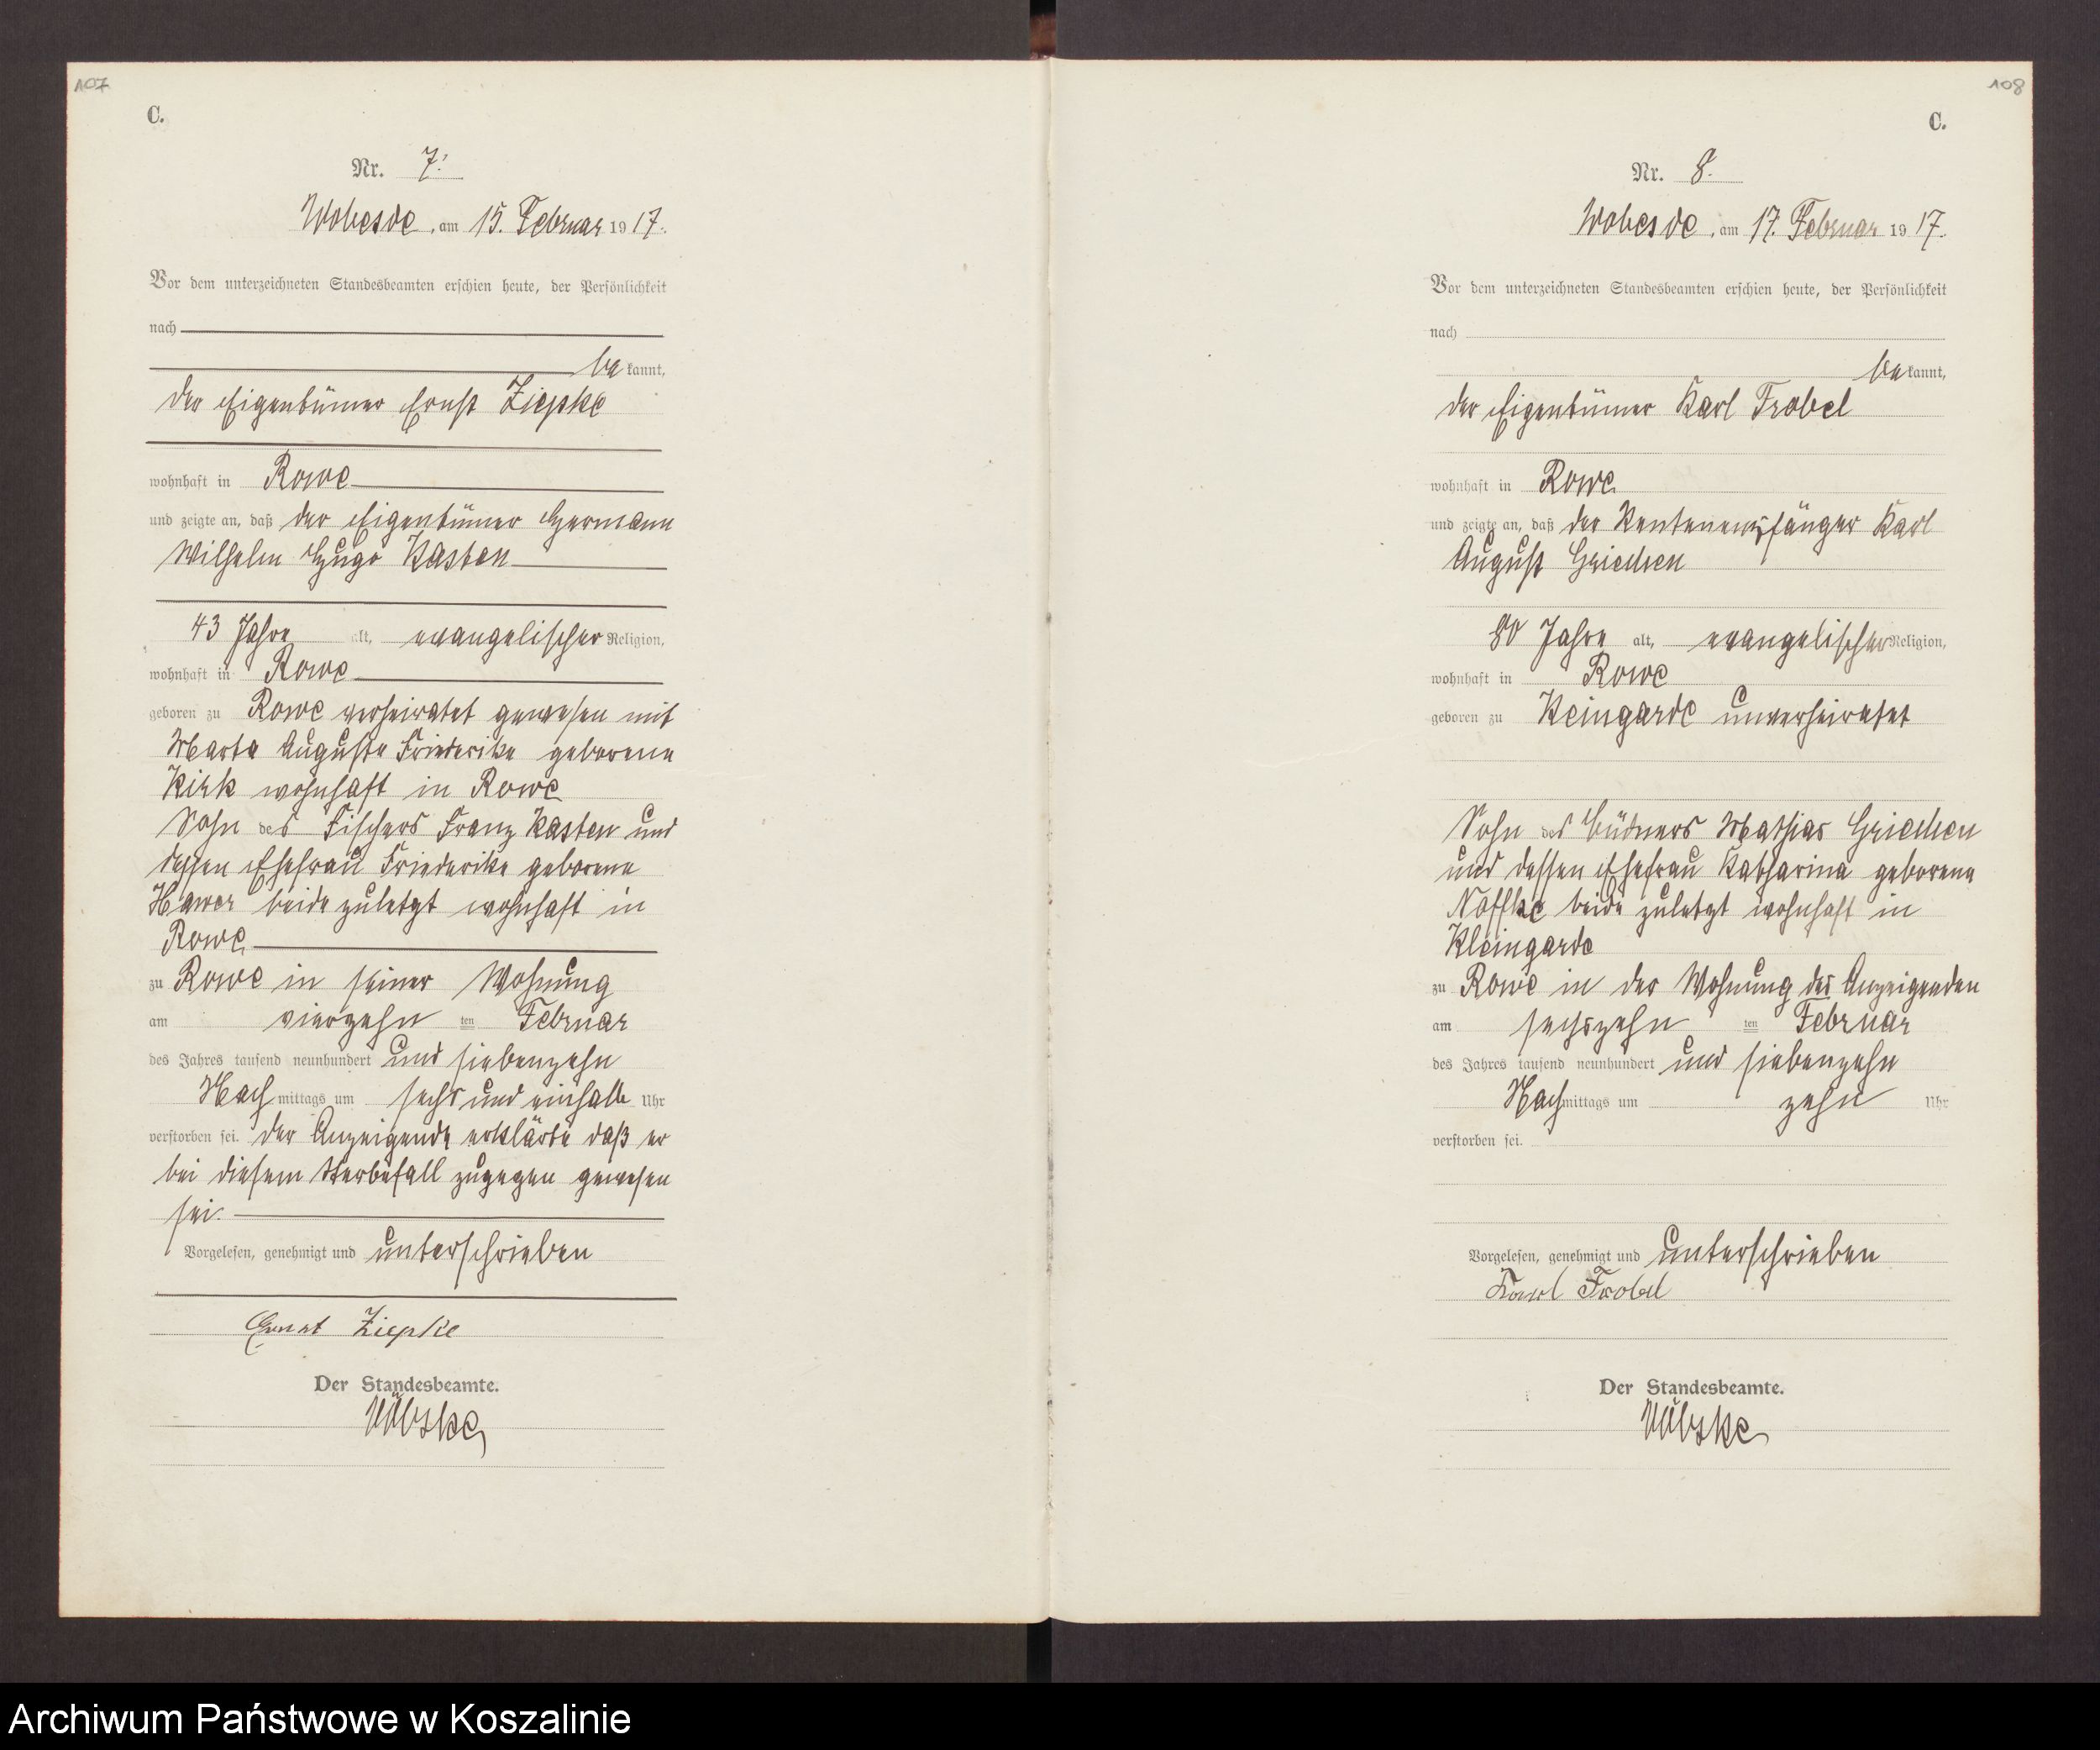 107
C.
Nr. 7.
Wobesde, am 15. Februar 1917.
Vor dem unterzeichneten Standesbeamten erschien heute, der Persönlichkeit
nach
be kannt,
der Eigentümer Ernst Ziepke
wohnhaft in Rowe
und zeigte an, daß der Eigentümer Hermann
Wilhelm Hugo Kasten
43 Jahre alt, evangelischer Religion,
wohnhaft in Rowe
geboren zu Rowe verheiratet gewesen mit
Marta Auguste Friederike geborene
Kirk wohnhaft in Rowe
Sohn des Fischers Franz Kasten und
dessen Ehefrau Friederike geborene
Hawer beide zuletzt wohnhaft in
Rowe
zu Rowe in seiner Wohnung
am vierzehn ten Februar
des Jahres tausend neunhundert und siebenzehn
Nach mittags um sechs und einhalb Uhr
verstorben sei. Der Anzeigende erklärte daß er
bei diesem Sterbefall zugegen gewesen
sei.
Vorgelesen, genehmigt und unterschrieben
Ernst Ziepke
Der Standesbeamte.
108
C.
Nr. 8.
Wobesde, am 17. Februar 1917.
Vor dem unterzeichneten Standesbeamten erschien heute, der Persönlichkeit
nach
be kannt,
der Eigentümer Karl Trobel
wohnhaft in Rowe
und zeigte an, daß der Rentenempfänger Karl
August Griechen
80 Jahre alt, evangelischer Religion,
wohnhaft in Rowe
geboren zu Kleingarde unverheiratet
Sohn des Büdners Mathias Griechen
und dessen Ehefrau Katharina geborene
Noffke beide zuletzt wohnhaft in
Kleingarde
zu Rowe in der Wohnung des Anzeigenden
am sechszehn ten Februar
des Jahres tausend neunhundert und siebenzehn
Nach mittags um zehn Uhr
verstorben sei.
Vorgelesen, genehmigt und unterschrieben
Karl Trobel
Der Standesbeamte.
Archiwum Państwowe w Koszalinie